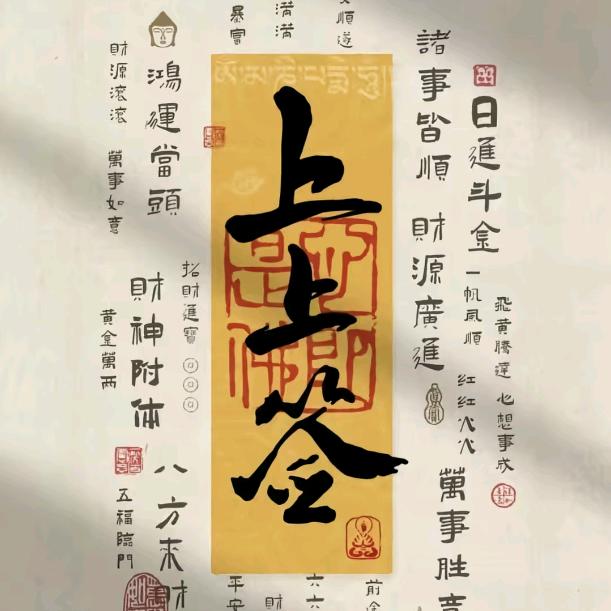 飛黃騰達 心想事成
日進斗金
一帆風順
紅紅火火
諸事皆順
財源廣進
萬事勝意
前途
順遂
六六
滿滿
財
ཨོཾ་མ་ཎི་པདྨེ་ཧཱུྃ
上上签
心即是佛
暴富
平安
招財進寶
鴻運當頭
財神附体
八方来財
財源滾滾
萬事如意
黃金萬两
五福臨門